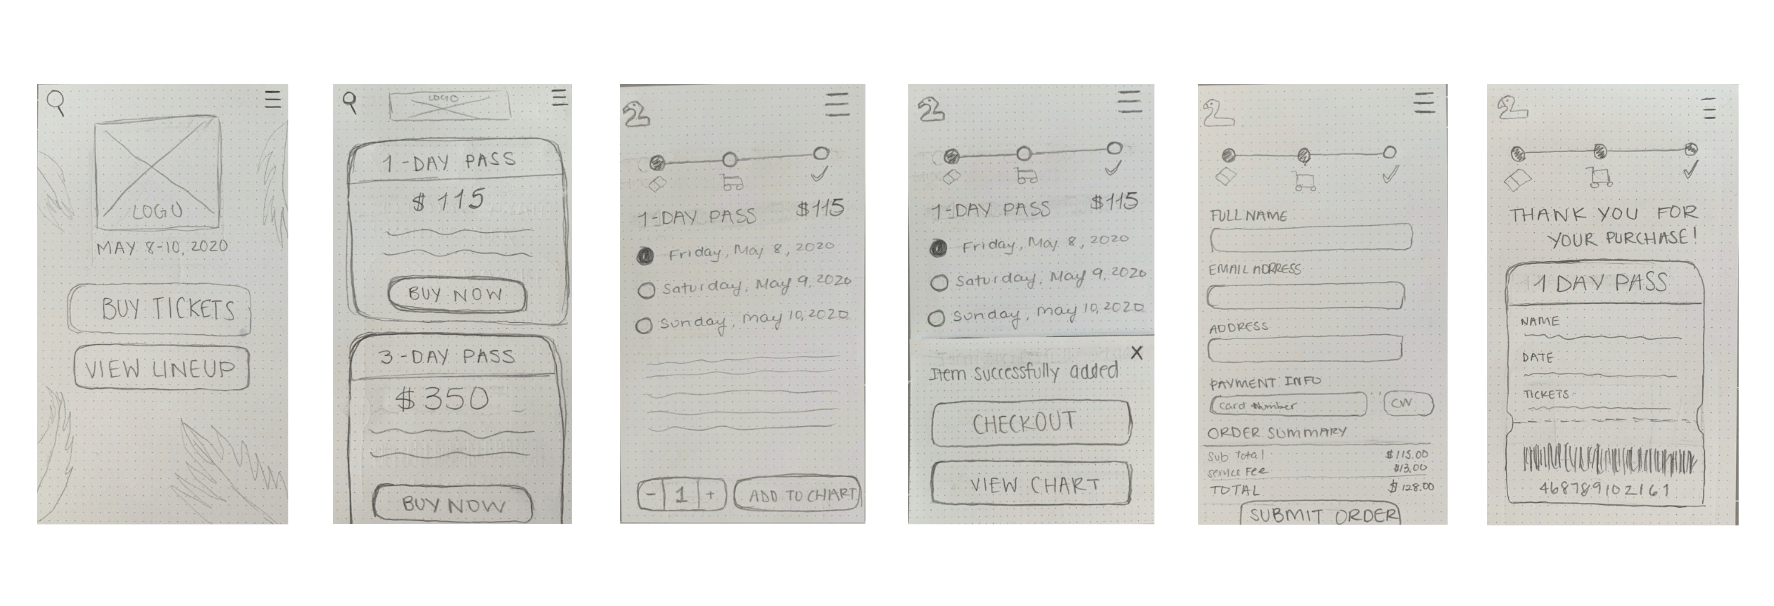 LOGO
MAY 8-10, 2020
BUY TICKETS
VIEW LINEUP
LOGO
1-DAY PASS
$115
BUY NOW
3-DAY PASS
$350
BUY NOW
1-DAY PASS $115
Friday, May 8, 2020
Saturday, May 9, 2020
Sunday, may 10, 2020
- 1 + ADD TO CHART
1-DAY PASS $115
Friday, May 8, 2020
Saturday, May 9, 2020
Sunday, may 10, 2020
X
Item successfully added
CHECKOUT
VIEW CHART
FULL NAME
EMAIL ADDRESS
ADDRESS
PAYMENT INFO
Card Number CVV
ORDER SUMMARY
Sub Total $115.00
Service Fee $13.00
TOTAL $128.00
SUBMIT ORDER
THANK YOU FOR
YOUR PURCHASE!
1 DAY PASS
NAME
DATE
TICKETS
468789102161